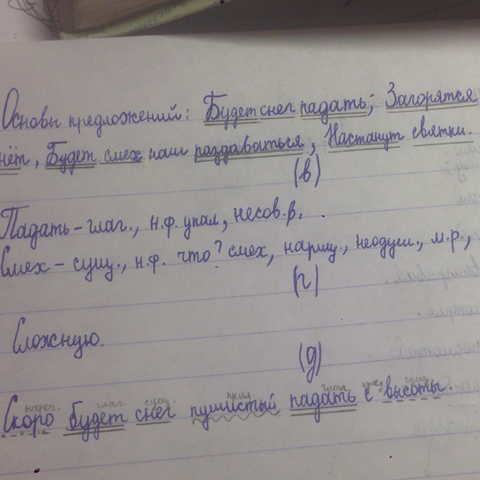 Основы предложений: Будет снег падать; Загорятся
нёт, Будет смех наш раздаваться, Настанут святки.
(в)
Падать – глаг., н.ф. упал, несов.в.,
Смех – сущ., н.ф. что? смех, нариц., неодуш., м.р.,
(г)
Сложную.
(д)
нареч. глаг. сущ. прил. глаг. пред. сущ.
Скоро будет снег пушистый падать с высоты.